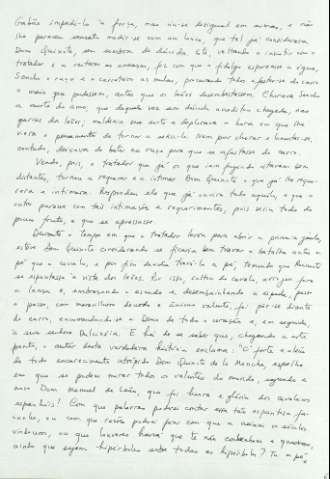 Gabão impedi-lo à força, mas viu-se desigual em armas, e não
lhe pareceu sensato medir-se com um louco, que tal já considerava
Dom Quixote, sem sombra de dúvida. Este, voltando a insistir com o
tratador e a reiterar as ameaças, fez com que o fidalgo esporeasse a égua,
Sancho o ruço e o carreteiro as mulas, procurando todos afastar-se do carro
o mais que pudessem, antes que os leões desembestassem. Chorava Sancho
a morte do amo, que daquela vez sem dúvida acreditava chegada, nas
garras dos leões, maldizia sua sorte e deplorava a hora em que lhe
viera o pensamento de tornar a servi-lo. Nem por chorar e lamentar-se,
contudo, deixava de bater no ruço para que se afastasse do carro.
Vendo, pois, o tratador que já os que iam fugindo estavam bem
distantes, tornou a requerer e a intimar Dom Quixote o que já lhe reque-
rera e intimara. Respondeu ele que já ouvira tudo aquilo, e que o
outro parasse com tais intimações e requerimentos, pois seria tudo de
pouco fruto, e que se apressasse.
Durante o tempo em que o tratador levou para abrir a primeira jaula,
esteve Dom Quixote considerando se ficaria bem travar a batalha antes a
pé que a cavalo, e por fim decidiu travá-la a pé, temendo que Rocinante
se espantasse à vista dos leões. Por isso, saltou do cavalo, arrojou fora
a lança e, embraçando o escudo e desembainhando a espada, passo
a passo, com maravilhoso denodo e ânimo valente, foi pôr-se diante
do carro, encomendando-se a Deus de todo o coração e, em seguida,
à sua senhora Dulcinéia. E há de se saber que, chegando a este
ponto, o autor desta verdadeira história exclama: "Ó forte e além
de todo encarecimento atrevido Dom Quixote de la Mancha, espelho
em que se podem mirar todos os valentes do mundo, segundo e
novo Dom Manuel de León, que foi honra e glória dos cavaleiros
espanhóis! Com que palavras poderei contar essa tão espantosa fa-
canha, ou com que razões poderei fazer com que a creiam os séculos
vindouros, ou que louvores haverá que te não convenham e quadrem,
ainda que sejam hipérboles sobre todas as hipérboles? Tu a pé,